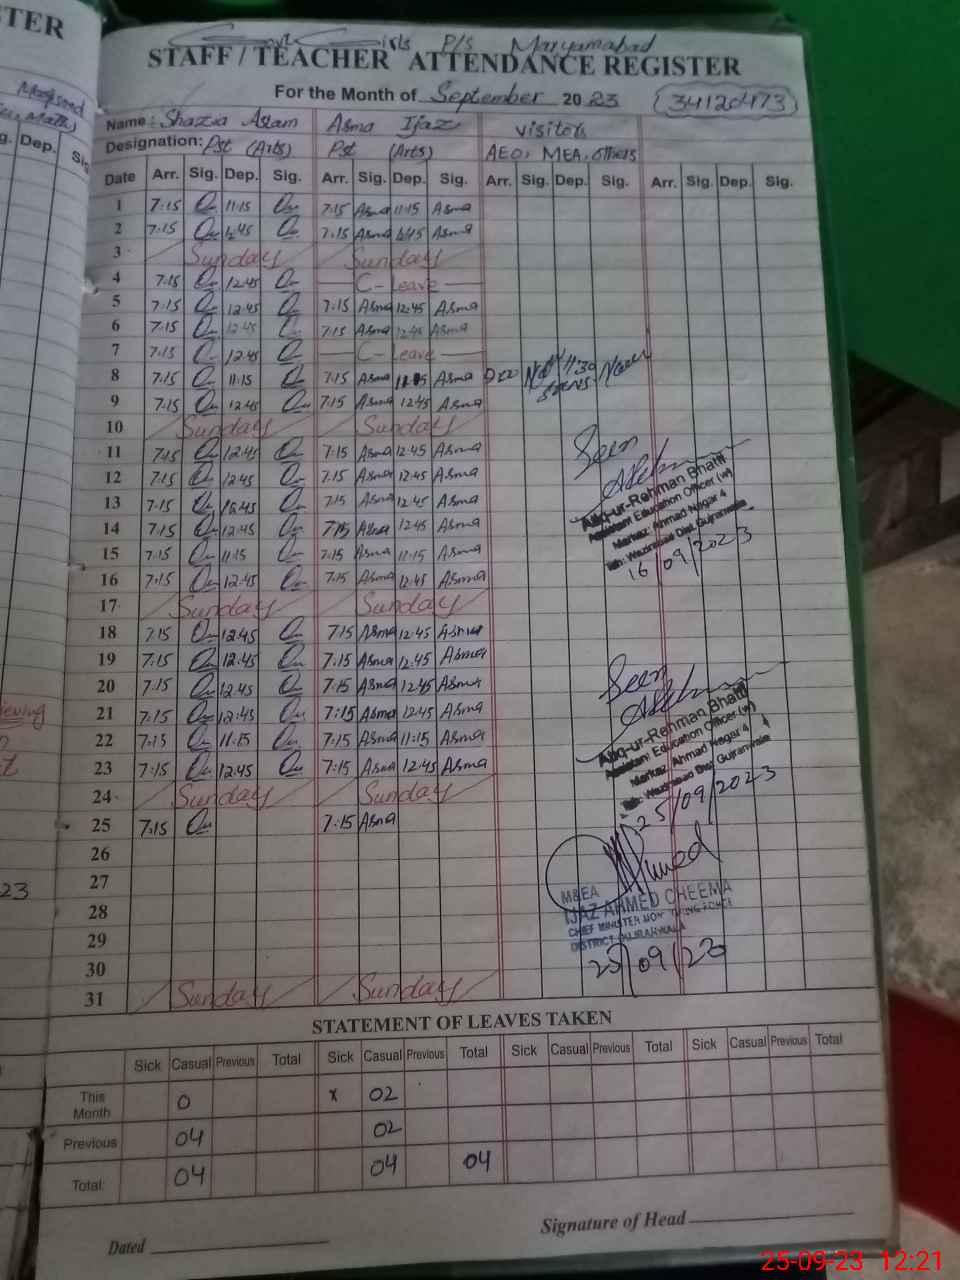 TER
Govt Girls P/S Maryamabad
STAFF / TEACHER ATTENDANCE REGISTER
For the Month of September 2023 34120473
Name: Shazia Aslam Asma Ijaz visitors
Designation: Pst (Arts) Pst (Arts) AEO, MEA, others
Date Arr. Sig. Dep. Sig. Arr. Sig. Dep. Sig. Arr. Sig. Dep. Sig. Arr. Sig. Dep. Sig.
1 7:15 11:15 7:15 Asma 11:15 Asma
2 7:15 7:15 Asma Asma
3 Sunday Sunday
4 7:15 12:45 C-Leave
5 7:15 12:45 7:15 Asma 12:45 Asma
6 7:15 12:45 7:15 Asma 12:45 Asma
7 7:15 12:45 C-Leave
8 7:15 11:15 7:15 Asma Asma 11:30
9 7:15 12:45 7:15 Asma 12:45 Asma
10 Sunday Sunday
11 7:15 12:45 7:15 Asma 12:45 Asma Seen
12 7:15 12:45 7:15 Asma 12:45 Asma
13 7:15 12:45 7:15 Asma 12:45 Asma Atiq-ur-Rehman Bhatti
14 7:15 12:45 7:15 Asma 12:45 Asma Assistant Education Officer (w)
15 7:15 11:15 7:15 Asma 11:15 Asma Markaz: Ahmad Nagar 4
Teh: Wazirabad Dist. Gujranwala
16 7:15 12:45 7:15 Asma 12:45 Asma 16/09/2023
17 Sunday Sunday
18 7:15 12:45 7:15 Asma 12:45 Asma
19 7:15 12:45 7:15 Asma 12:45 Asma
20 7:15 12:45 7:15 Asma 12:45 Asma Seen
21 7:15 12:45 7:15 Asma 12:45 Asma Atiq-ur-Rehman Bhatti
22 7:15 11:15 7:15 Asma 11:15 Asma Assistant Education Officer (w)
23 7:15 12:45 7:15 Asma 12:45 Asma Markaz: Ahmad Nagar 4
24 Sunday Sunday Teh: Wazirabad Dist. Gujranwala
25 7:15 7:15 Asma 25/09/2023
26
27 M&EA
28 IJAZ AHMED CHEEMA
CHIEF MINISTER MONITORING FORCE
29 DISTRICT GUJRANWALA
30 25/09/23
31 Sunday Sunday
STATEMENT OF LEAVES TAKEN
Sick Casual Previous Total Sick Casual Previous Total Sick Casual Previous Total Sick Casual Previous Total
This Month 0 x 02
Previous 04 02
Total: 04 04 04
Signature of Head
Dated
25-09-23 12:21